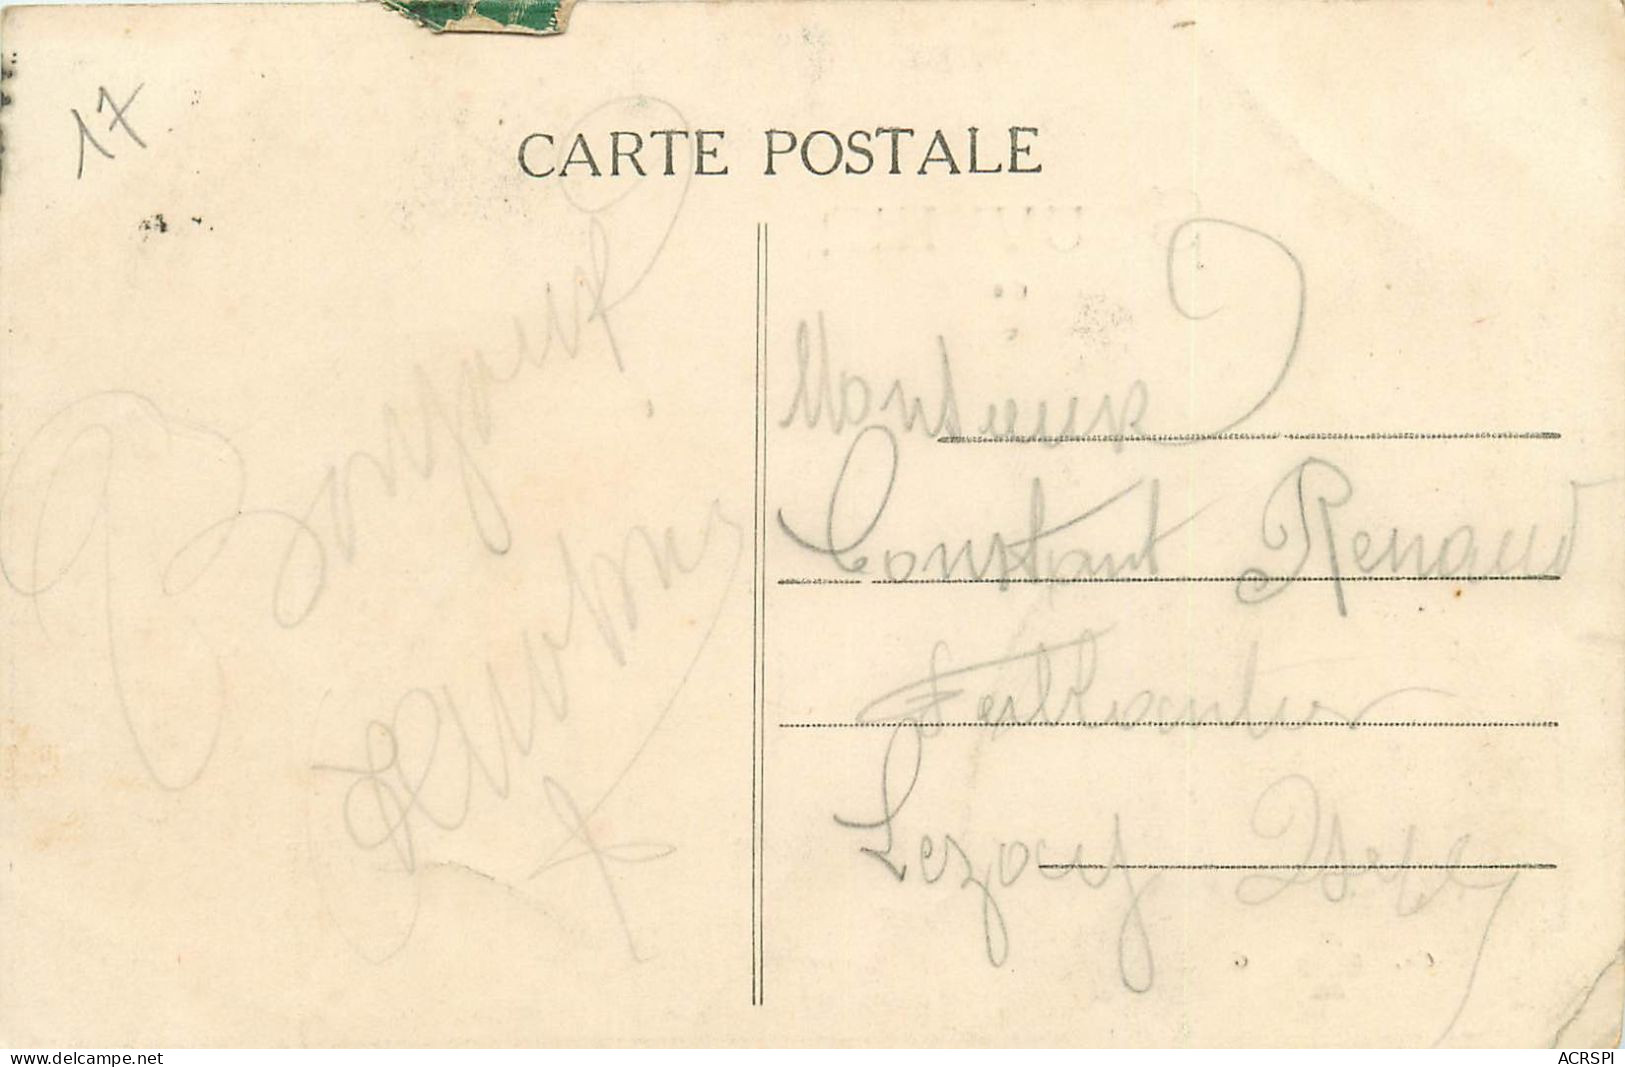 17
CARTE POSTALE
Bonjour
Monsieur
Constant Renaud
Ferblantier
Lezoux
www.delcampe.net
ACRSPI